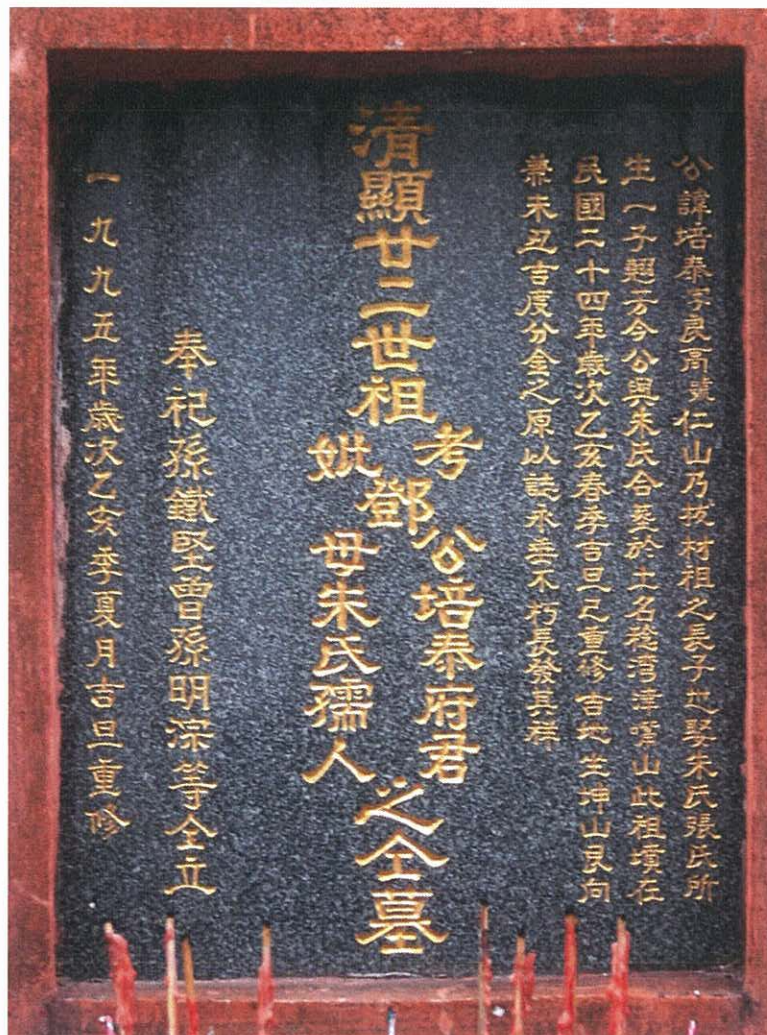 公諱培泰字良高號仁山乃拔材祖之長子也娶朱氏張氏所
生一子翹芳今公與朱氏合葬於土名稔灣潭嘴山此祖墳在
民國二十四年歲次乙亥春季吉旦已重修吉地坐坤山艮向
兼未丑吉度分金之原以誌永垂不朽長發其祥
清顯廿二世祖
考
妣
鄧
公培泰府君
母朱氏孺人
之仝墓
奉祀孫鐵堅曾孫明深等仝立
一九九五年歲次乙亥季夏月吉旦重修